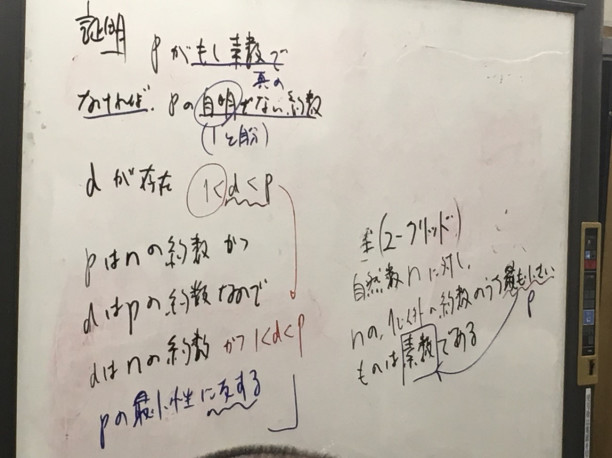 証明 pがもし素数で
なければ、pの自明でない約数
真の
(1と自分)
dが存在 1<d<p
pはnの約数かつ
dはpの約数なので
dはnの約数 かつ 1<d<p
pの最小性に反する
(ユークリッド)
自然数nに対し、
nの、1以外の約数のうち最も小さい
p
ものは素数である